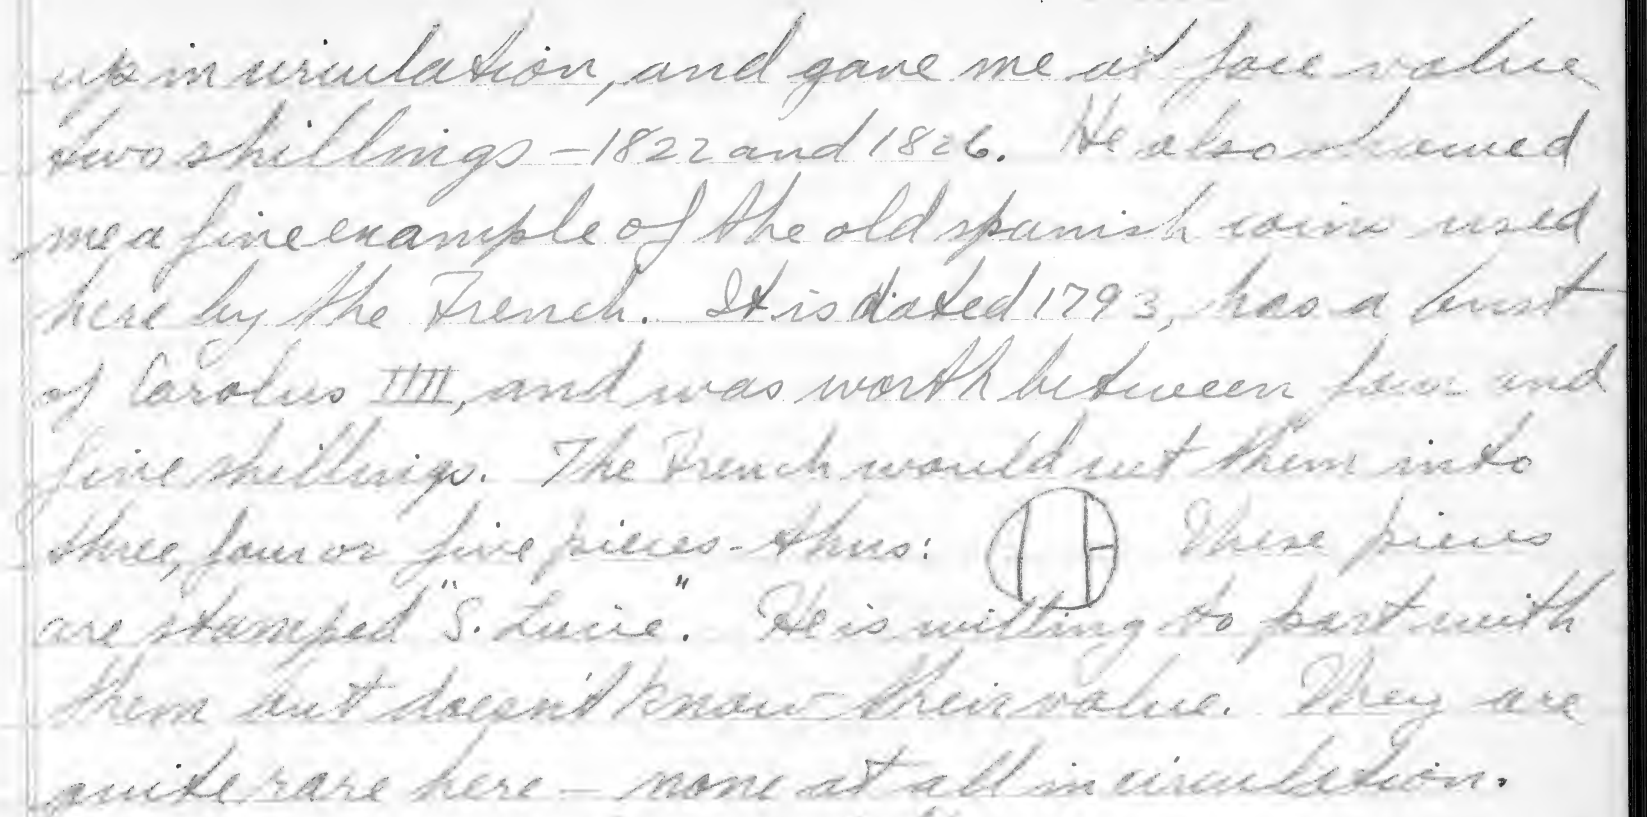 up in circulation, and gave me at face value
two shillings – 1822 and 1826. He also showed
me a fine example of the old spanish coins used
here by the French. It is dated 1793, has a bust
of Carolus IIII, and was worth between four and
five shillings. The French would cut them into
three, four or five pieces - thus: These pieces
are stamped "S. Lucie". He is willing to part with
them but doesn't know their value. They are
quite rare here – none at all in circulation.